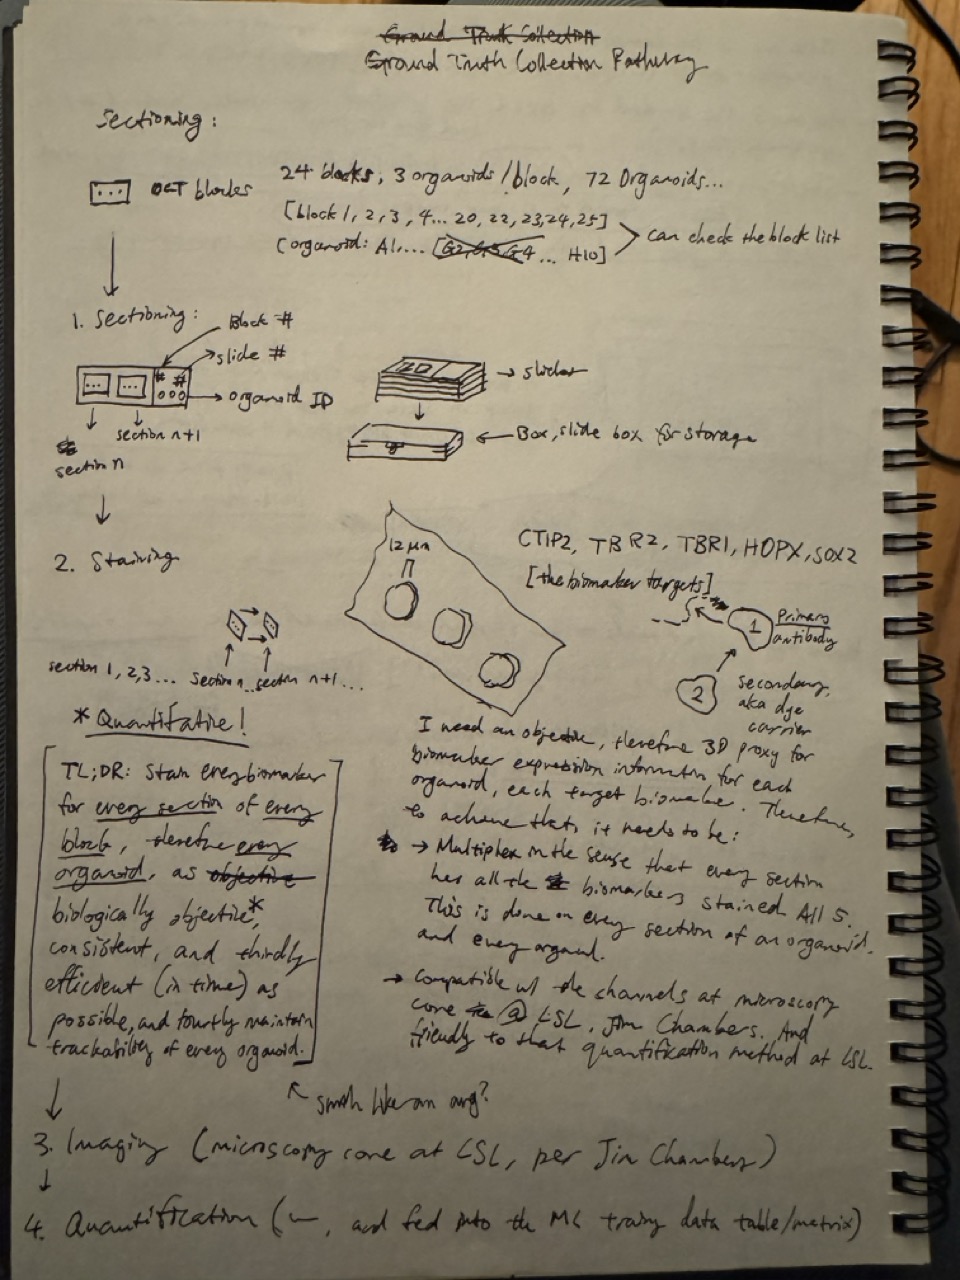 Ground Truth Collection
Ground Truth Collection Pathway
Sectioning:
OCT blocks
24 blocks, 3 organoids/block, 72 Organoids...
[block 1, 2, 3, 4... 20, 22, 23, 24, 25]
[organoid: A1,... [G2, G3, G4 ... H10]
can check the block list
1. Sectioning:
Block #
slide #
# #
organoid ID
section n+1
section n
slides
Box, slide box for storage
2. Staining
12 μm
CTIP2, TBR2, TBR1, HOPX, SOX2
[the biomarker targets]
1
Primary
antibody
2
secondary,
aka dye
carrier
section 1, 2, 3... section n section n+1...
* Quantitative!
TL;DR: Stain every biomarker
for every section of every
block, therefore every
organoid, as objective
biologically objective*,
consistent, and thirdly
efficient (in time) as
possible, and fourthly maintain
trackability of every organoid.
I need an objective, therefore 3D proxy for
biomarker expression information for each
organoid, each target biomarker. Therefore,
to achieve that, it needs to be:
→ Multiplex in the sense that every section
has all the biomarkers stained. All 5.
This is done on every section of an organoid.
and every organoid.
→ Compatible w/ the channels at microscopy
core @ LSL, Jim Chambers. And
friendly to that quantification method at LSL.
like an
3. Imaging (microscopy core at LSL, per Jim Chambers)
4. Quantification ( , and fed into the ML training data table/matrix)